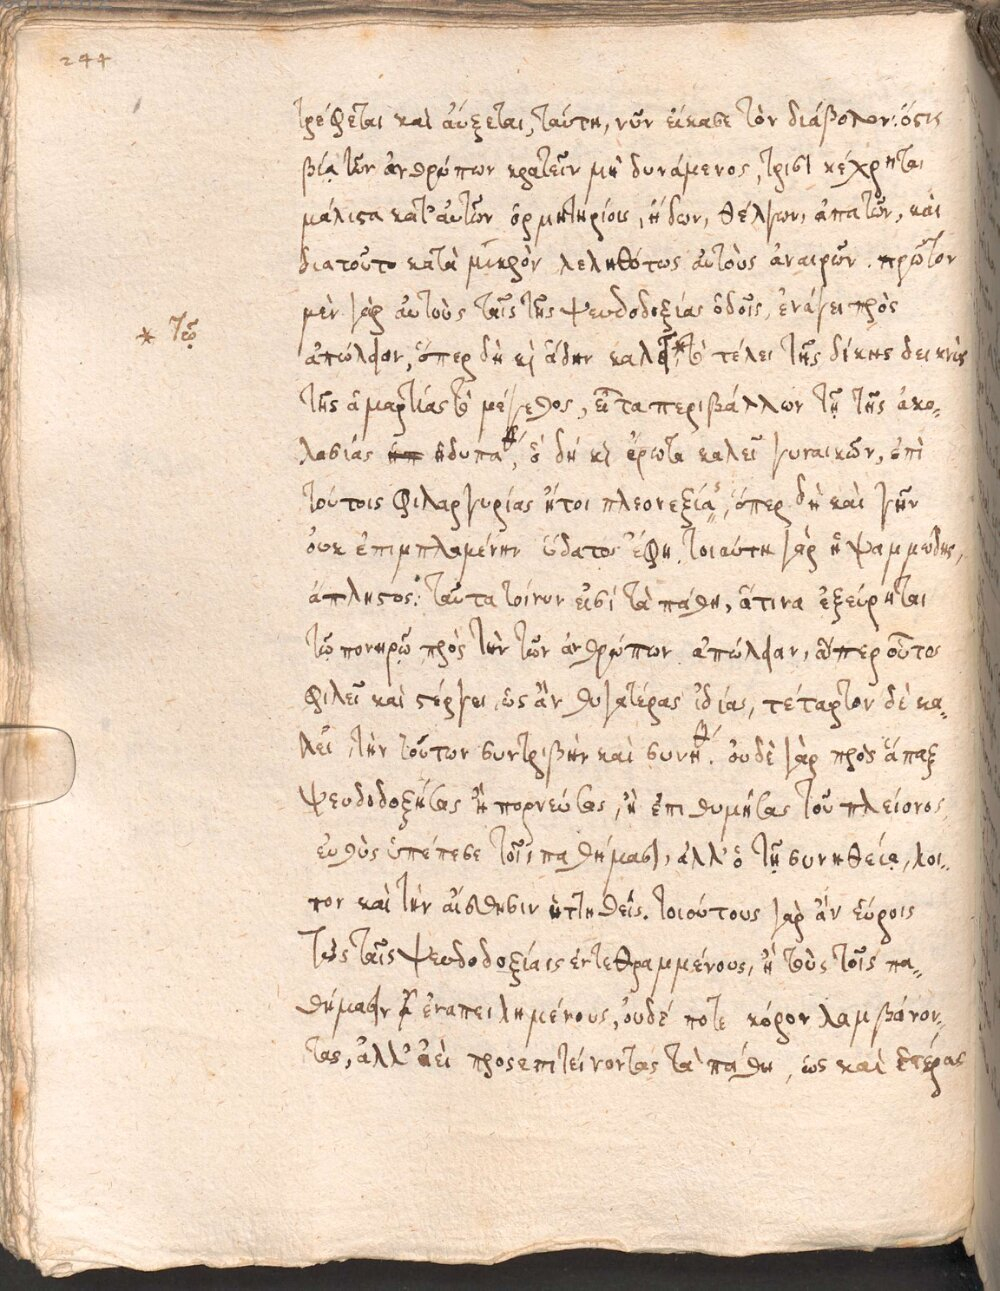 244
τρέφεται καὶ αὔξεται, ταύτη, νῦν εἴκασε τὸν διάβολον· ὅστις
βίᾳ τῶν ἀνθρώπων κρατεῖν μὴ δυνάμενος, τρισὶ κέχρηται
μάλιστα κατ' αὐτῶν ὁρμητηρίοις, ἥδων, θέλγων, ἀπατῶν, καὶ
διατοῦτο κατὰ μικρὸν λεληθότως αὐτοὺς ἀναιρῶν. πρῶτον
μὲν γὰρ αὐτοὺς ταῖς τῆς ψευδοδοξίας ὁδοῖς, ἐνάγει πρὸς
* τῷ
ἀπώλειαν, ὅπερ δὴ κὶ ἅδην καλεῖ * τὸ τέλει τῆς δίκης δεικνὺς
τῆς ἁμαρτίας τὸ μέγεθος, εἶτα περιβάλλων τῇ τῆς ἀκο-
λασίας ἡδυπαθ, ὃ δὴ κὶ ἔρωτα καλεῖ γυναικῶν, ἐπὶ
τούτοις φιλαργυρίας ἤτοι πλεονεξίας, ὅπερ δὴ καὶ γῆν
οὐκ ἐπιμπλαμένην ὕδατος ἔφη. τοιαύτη γὰρ ἡ ψαμμώδης,
ἄπληστος. ταῦτα τοίνυν εἰσὶ τὰ πάθη, ἅτινα ἐξεύρηται
τῷ πονηρῷ πρὸς τὴν τῶν ἀνθρώπων ἀπώλειαν, ἅπερ οὗτος
φιλεῖ καὶ στέργει, ὡς ἂν θυγατέρας ἰδίας, τέταρτον δὲ κα-
λεῖ τὴν τούτων συντριβὴν καὶ συνήθ. οὐδὲ γὰρ πρὸς ἅπαξ
ψευδοδοξήσας ἢ πορνεύσας, ἢ ἐπιθυμήσας τοῦ πλείονος
εὐθὺς ὑπέπεσε τοῖς παθήμασι, ἀλλ' ὁ τῇ συνηθείᾳ, λοι-
πον καὶ τὴν αἴσθησιν ἡττηθείς. τοιούτους γὰρ ἂν εὕροις
τοὺς ταῖς ψευδοδοξίαις ἐντεθραμμένους, ἢ τοὺς τοῖς πα-
θήμασιν ἐναπειλημένους, οὐδέ ποτε κόρον λαμβάνον-
τας, ἀλλ' ἀεὶ προσεπιτείνοντας τὰ πάθη, ὡς καὶ ἑτέρας